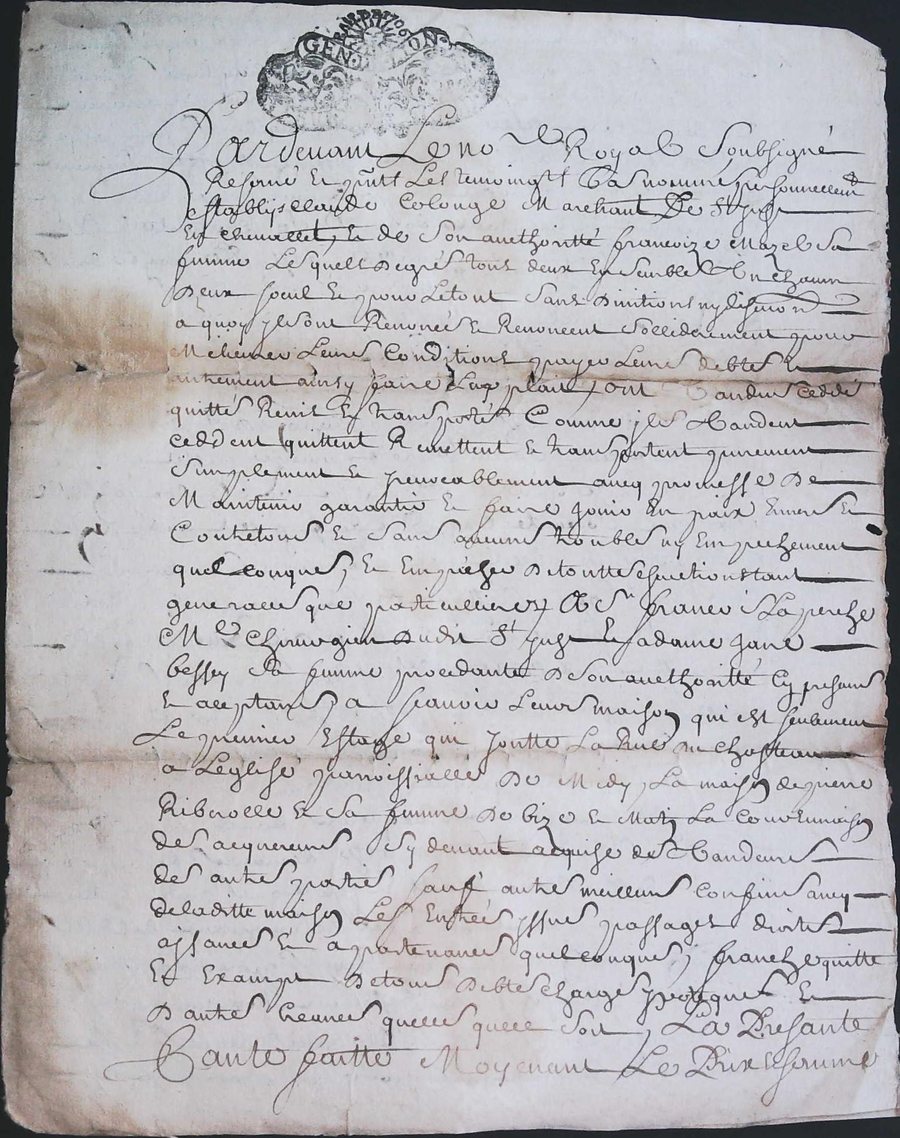 GEN. D. LYON
Pardevant Le no re Royal Soubsigné
Reservé et putz Les temoingts bas nommés personnellemt
establys de Colonge Marchant De St Just
En chevallet, et de Son aucthoritté francoize Mazel Sa
femme Lesquels Degrés tous deux Ensemble Un chacun
Deux seul et pour Letout Sans Divitions ny
a quoy ils ont Renoncés et Renoncent Sollidérement pour
Leurs Conditions payer Leurs debtes Et
autrement ainsy faire Leur plait, ont Vandus ceddé
quittés Remis Et transportés Comme ils Vandent
ceddent quittent Remettent et transportent purement
Simplement et yrevocablement aveq promesse De
Maintenir garantir et faire jouir En paix Envers Et
Contretous Et Sans aucuns troubles ny Empechement
quelconques, et Empecher Detouttes Evictions tant
generalles que particullieres A Sr francois Laperche
Me Chirurgien Dudit St Just Et Madame jane
bessey Sa femme procedante De Son aucthoritté Cy presans
Et aceptans, a scavoir Leurs maison qui est seulement
Le premier Estage qui joutte La Rue Du chasteau
a Leglise parroissialle De Midy, La maison de pierre
Riberolle Et Sa femme De bize et Matin La Cour
des acquereurs Cy devant acquise des Vandeurs
des autres parties sauf autres meilleurs confins aveq
deladitte maison Les Entrées yssues passages droits
aysances Et apartenances quelconques, franche quitte
Et Exampt Detous Debtes charges ypoteques Et
Dautres quelle quelle Soit, La Presante
Vante faitte Moyenant Le Prix Et somme